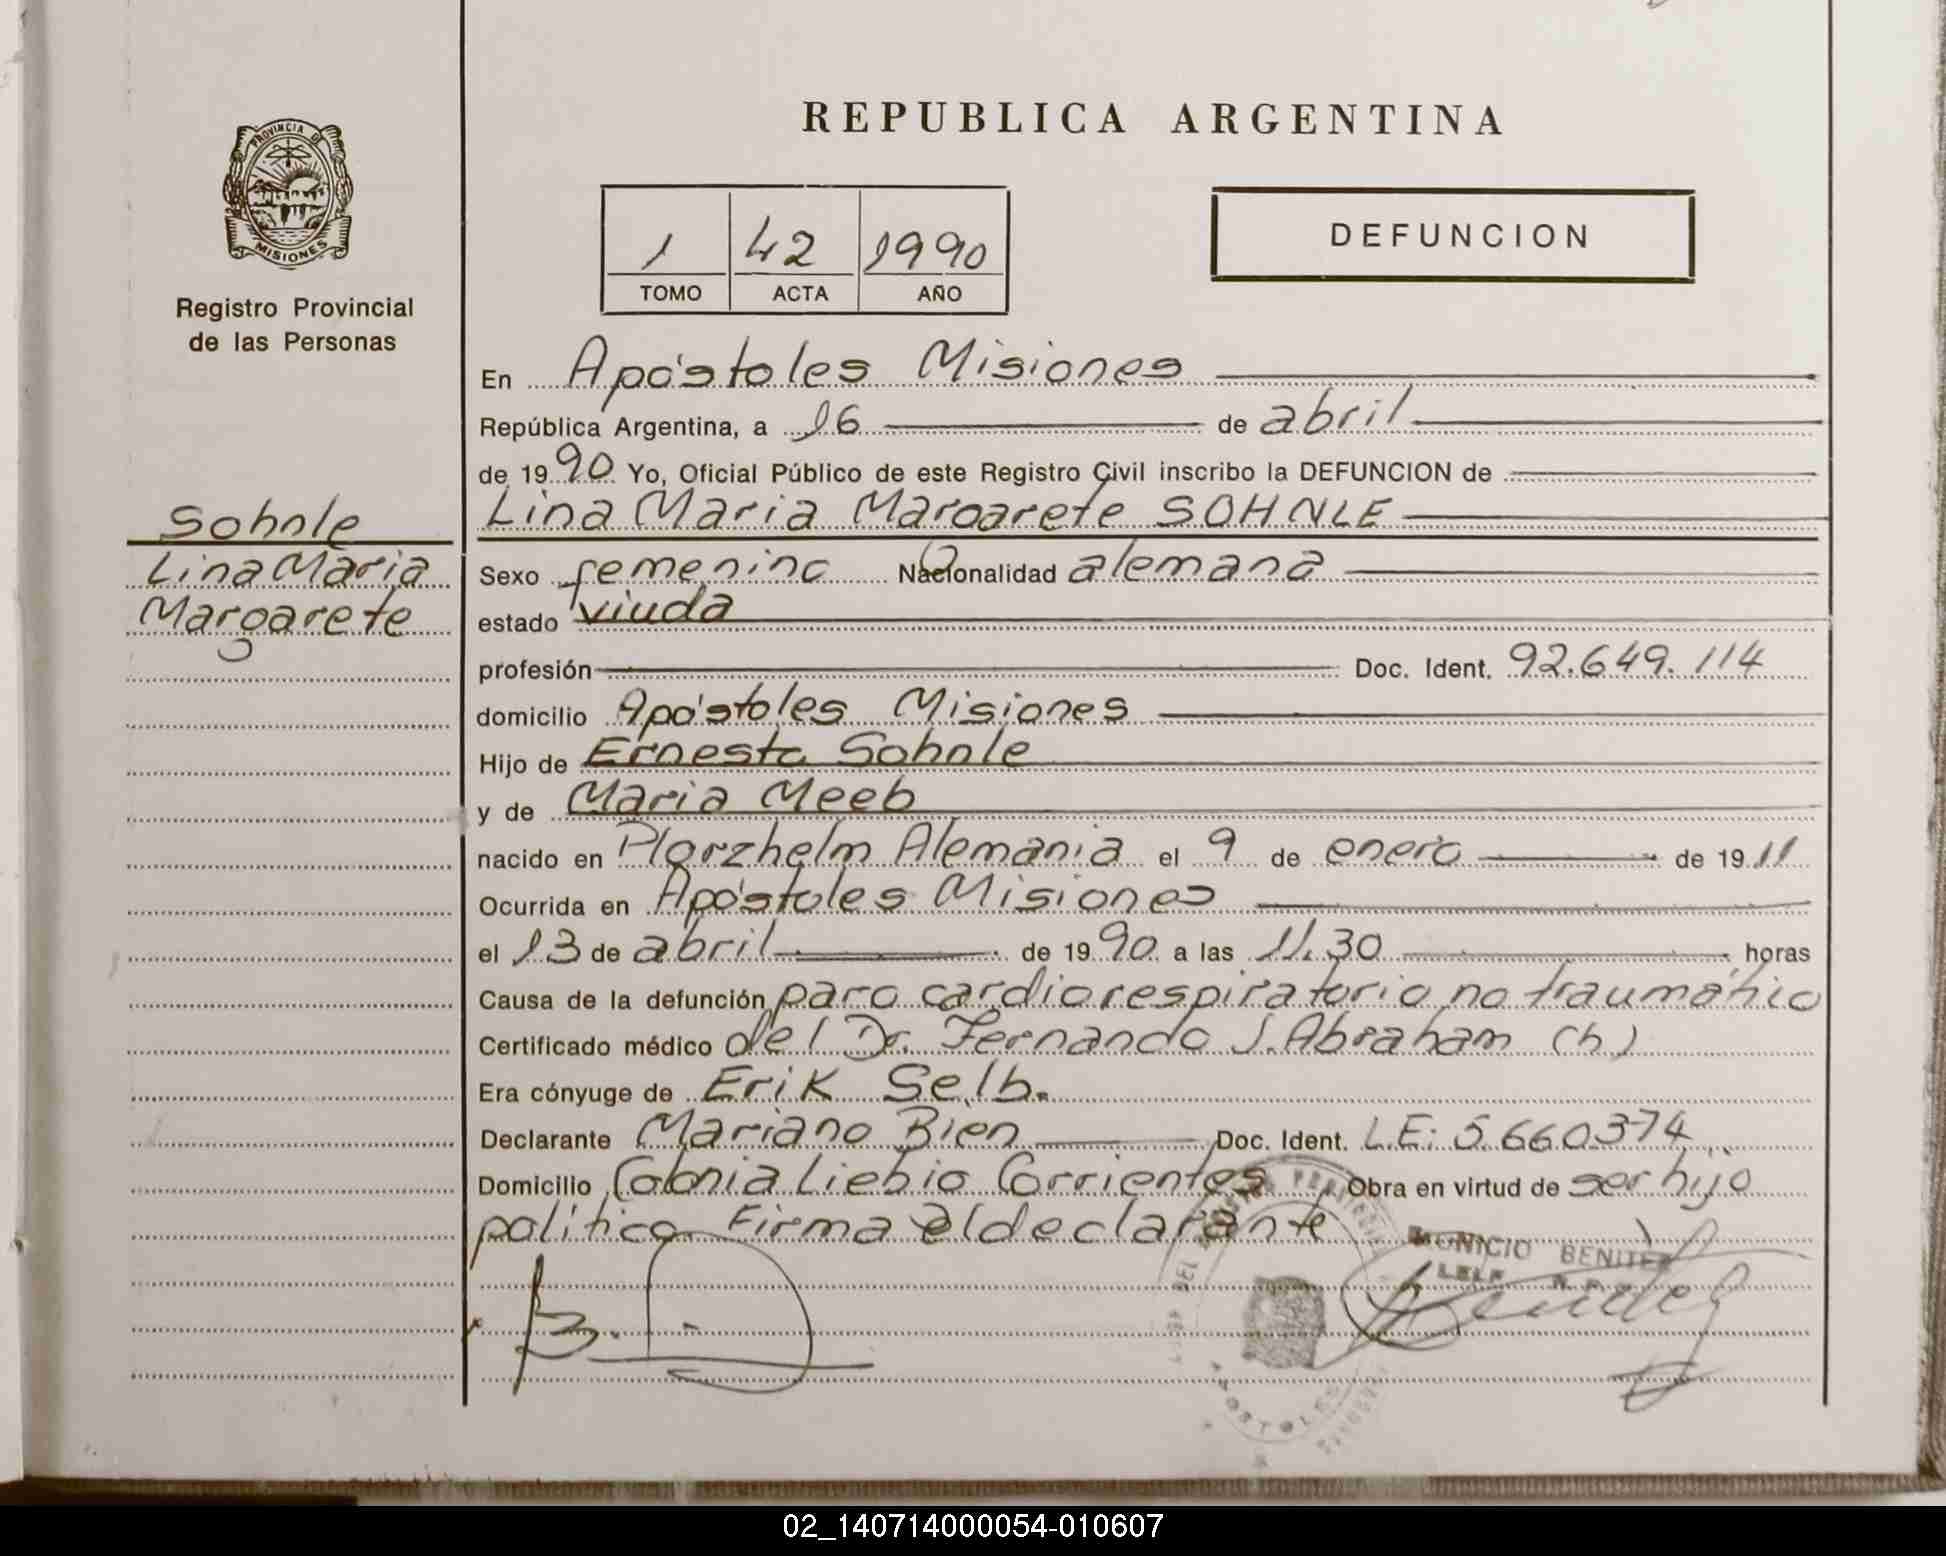 REPUBLICA ARGENTINA
PROVINCIA DE
MISIONES
Registro Provincial
de las Personas
1 42 1990
TOMO ACTA AÑO
DEFUNCION
En Apóstoles Misiones
República Argentina, a 16 de abril
de 1990 Yo, Oficial Público de este Registro Civil inscribo la DEFUNCION de
Lina Maria Margarete SOHNLE
Sohnle
Lina Maria
Margarete
Sexo femenino Nacionalidad alemana
estado viuda
profesión Doc. Ident. 92.649.114
domicilio Apóstoles Misiones
Hijo de Ernesto Sohnle
y de Maria Meeb
nacido en Plorzhelm Alemania el 9 de enero de 1911
Ocurrida en Apóstoles Misiones
el 13 de abril de 1990 a las 11.30 horas
Causa de la defunción paro cardiorespiratorio no traumático
Certificado médico del Dr. Fernando J. Abraham (h)
Era cónyuge de Erik Selb.
Declarante Mariano Bien Doc. Ident. L.E: 5.660374
Domicilio Colonia Liebig Corrientes Obra en virtud de ser hijo
político Firma el declarante
BENITEZ
APOSTOLES
02_140714000054-010607